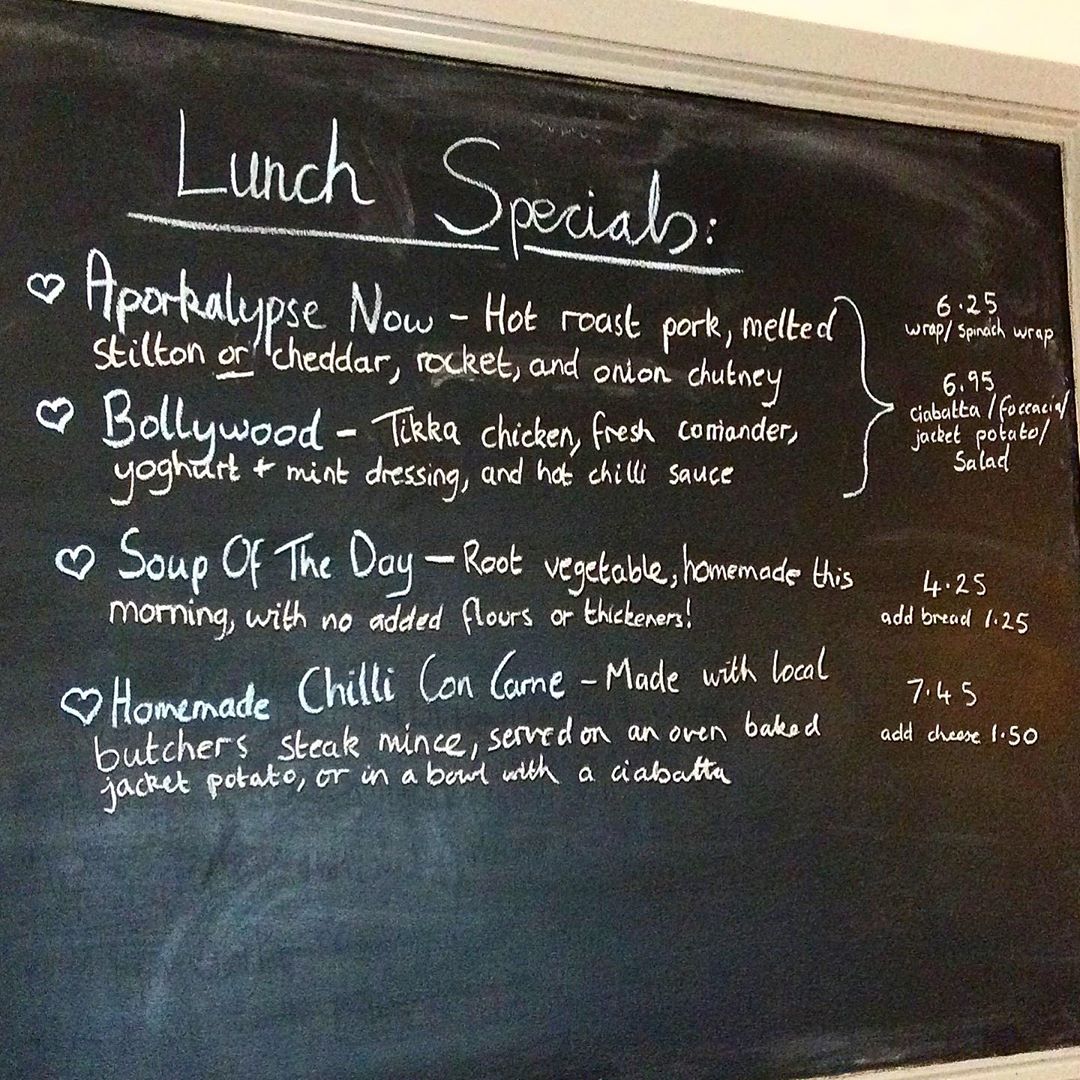 Lunch Specials:
Aporkalypse Now - Hot roast pork, melted
stilton or cheddar, rocket, and onion chutney
Bollywood - Tikka chicken, fresh coriander,
yoghurt + mint dressing, and hot chilli sauce
6.25
wrap/spinach wrap
6.95
ciabatta/foccacia/
jacket potato/
Salad
Soup Of The Day - Root vegetable, homemade this
morning, with no added flours or thickeners!
4.25
add bread 1.25
Homemade Chilli Con Carne - Made with local
butchers steak mince, served on an oven baked
jacket potato, or in a bowl with a ciabatta
7.45
add cheese 1.50